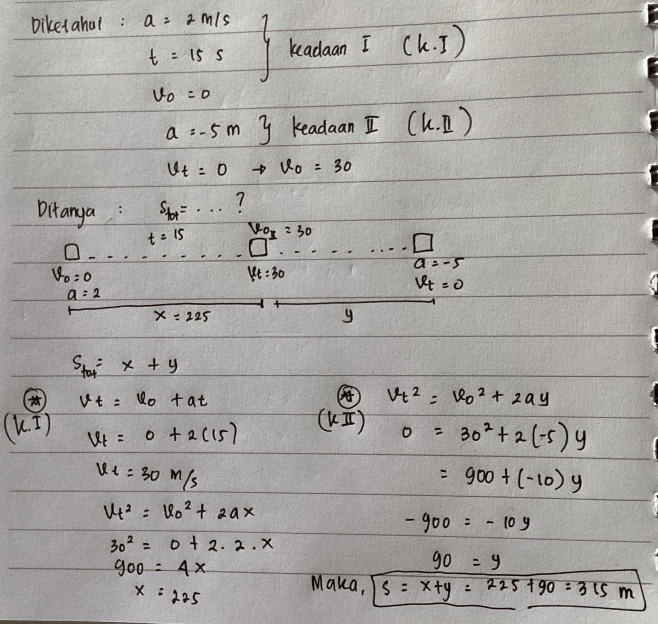 Diketahui : a = 2 m/s
t = 15 s } keadaan I (k.I)
Vo = 0
a = -5 m } keadaan II (k.II)
Vt = 0 → Vo = 30
Ditanya : Stot = ... ?
t = 15 VoII = 30
Vo = 0 Vt = 30 a = -5
a = 2 Vt = 0
x = 225 y
Stot = x + y
(k.I) Vt = Vo + at
Vt = 0 + 2(15)
Vt = 30 m/s
Vt² = Vo² + 2ax
30² = 0 + 2.2.x
900 = 4x
x = 225
(k.II) Vt² = Vo² + 2ay
0 = 30² + 2(-5) y
= 900 + (-10) y
-900 = -10y
90 = y
Maka, s = x+y = 225 + 90 = 315 m